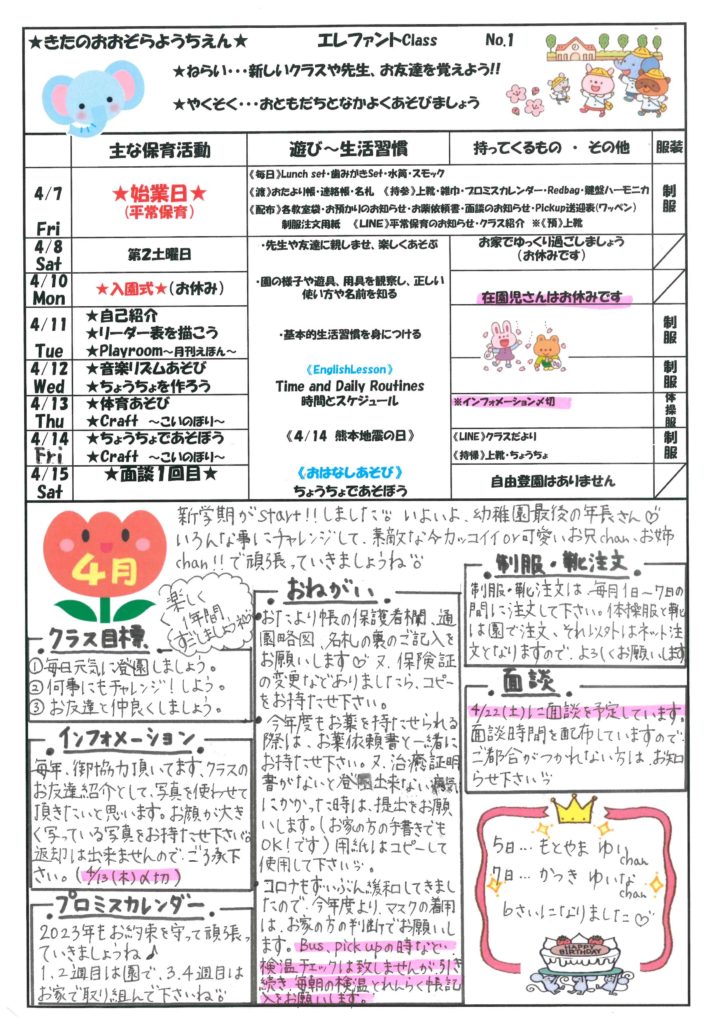 ★きたのおおぞらようちえん★ エレファントClass No.1
★ねらい・・・新しいクラスや先生、お友達を覚えよう!!
★やくそく・・・おともだちとなかよくあそびましょう
主な保育活動 遊び～生活習慣 持ってくるもの ・ その他 服装
4/7 Fri
★始業日★
(平常保育)
《毎日》Lunch set・歯みがきSet・水筒・スモック
《渡》おたより帳・連絡帳・名札 《持参》上靴・雑巾・プロミスカレンダー・Redbag・鍵盤ハーモニカ
《配布》各教室袋・お預かりのお知らせ・お薬依頼書・面談のお知らせ・Pickup送迎表(ワッペン)
制服注文用紙 《LINE》平常保育のお知らせ・クラス紹介 ※《預》上靴
制服
4/8 Sat
第2土曜日
・先生や友達に親しませ、楽しくあそぶ
お家でゆっくり過ごしましょう
(お休みです)
4/10 Mon
★入園式★(お休み)
・園の様子や遊具、用具を観察し、正しい
使い方や名前を知る
在園児さんはお休みです
4/11 Tue
★自己紹介
★リーダー表を描こう
★Playroom～月刊えほん～
・基本的生活習慣を身につける
制服
4/12 Wed
★音楽リズムあそび
★ちょうちょを作ろう
《EnglishLesson》
Time and Daily Routines
制服
4/13 Thu
★体育あそび
★Craft ～こいのぼり～
時間とスケジュール
※インフォメーション〆切
体操服
4/14 Fri
★ちょうちょであそぼう
★Craft ～こいのぼり～
《4/14 熊本地震の日》
《LINE》クラスだより
《持帰》上靴・ちょうちょ
制服
4/15 Sat
★面談1回目★
《おはなしあそび》
ちょうちょであそぼう
自由登園はありません
4月
新学期がstart!!しました いよいよ、幼稚園最後の年長さん♡
いろんな事にチャレンジして、素敵な今カッコイイor可愛いお兄chan、お姉
chan!!で頑張っていきましょうね
楽しく
1年間
すごしましょうね
クラス目標
①毎日元気に登園しましょう。
②何事にもチャレンジ!しよう。
③お友達と仲良くしましょう。
インフォメーション
毎年、御協力頂いてます、クラスの
お友達紹介として、写真を使わせて
頂きたいと思います。お顔が大き
く写っている写真をお持たせ下さい
返却は出来ませんので、ご了承下
さい。(4/13(木)〆切)
プロミスカレンダー
2023年もお約束を守って頑張っ
ていきましょうね♪
1、2週目は園で、3、4週目は
お家で取り組んで下さいね
おねがい
・おたより帳の保護者欄、通
園略図、名札の裏のご記入を
お願いします♡又、保険証
の変更などありましたら、コピー
をお持たせ下さい。
・今年度もお薬を持たせられる
際は、お薬依頼書と一緒に
お持たせ下さい。又、治癒証明
書がないと登園出来ない病気
にかかった時は、提出をお願
いします。(お家の方の手書きでも
OK!です)用紙はコピーして
使用して下さい
・コロナもずいぶん緩和してきまし
たので、今年度より、マスクの着用
は、お家の方の判断でお願いし
ます。Bus、pick upの時など、
検温チェックは致しませんが、引き
続き、毎朝の検温とれんらく帳記
入をお願いします。
制服・靴注文
制服・靴注文は、毎月1日～7日の
間に注文して下さい。体操服と靴
は園で注文、それ以外はネット注
文となりますので、よろしくお願いします
面談
4/22(土)に面談を予定しています。
面談時間を配布していますので、
ご都合がつかれない方は、お知
らせ下さい
5日…もとやま ゆい chan
7日…かつき ゆいな chan
6さいになりました♡
HAPPY BIRTHDAY